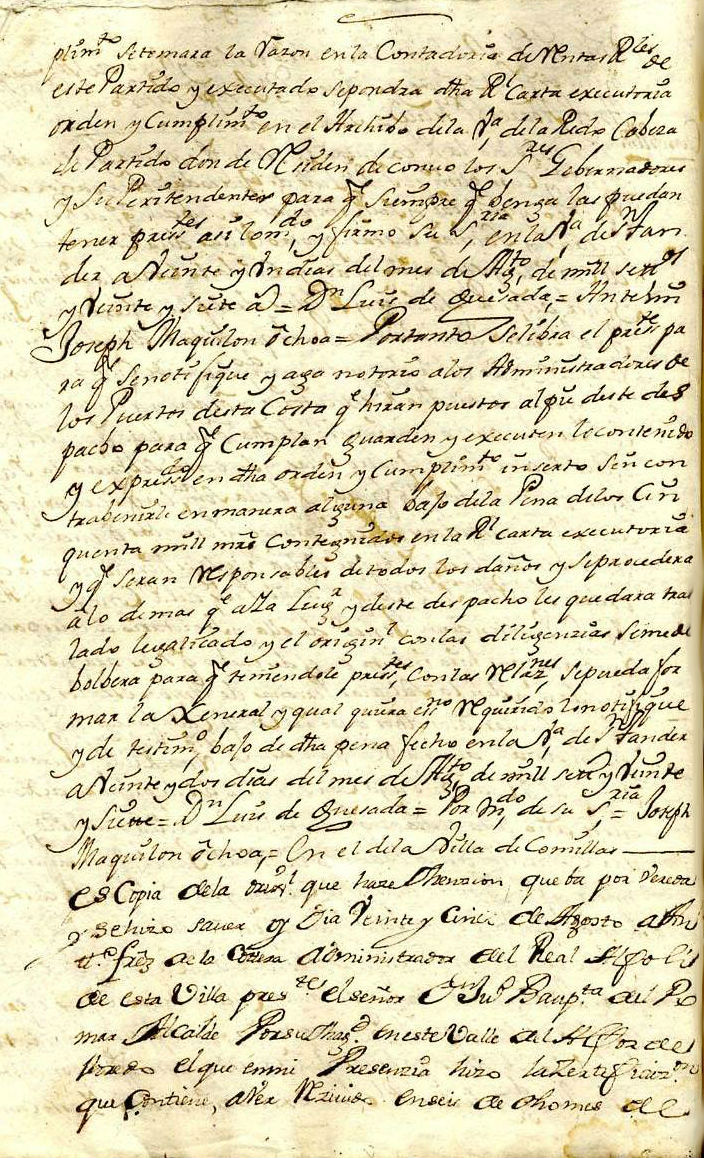 plimto setomara la Razon en la Contaduria de Rentas Rles de
este Partido y executado sepondra dha Rl Carta executoria
orden y Cumplimto en el Archibo dela Va dela Redo Cabeza
de Partido don de Residen de conuo los Sres Gobernadores
y Superintendentes para qe siempre qe benga las puedan
tener presstes asi lo mdo, y firmo su Sria, en la Va, de Sn tan
der a Veinte y Un dias del mes de Agto, de mill settos
y Veinte y siete as = Dn Luis de Quesada, = Antemi
Joseph Maquilon ôchoa = Portanto Selibra el presste pa
ra qe se notifique y aga notorio alos Administradores de
los Puertos desta Costa qe hiran puestos al pie deste des
pacho para qe Cumplan guarden y executen lo contenido
y expressdo en dha orden y Cumplimto inserto sin con
trabenirle en manera alguna bajo dela Pena delos Cin
quenta mill mrs Contenidos en la Rl carta executoria
y qe seran Responsables de todos los daños y se prozedera
alo demas qe aza Lugr y deste despacho les quedara tras
lado legalizado y el originl con las diligenzias seme de
bolbera para qe teniendole presste, con las Relaznes, se pueda for
mar la Xeneral y qual quiera essno Requerido lo notifique
y de testimo, bajo de dha pena fecho en la Va, de Sn tander
a Veinte y dos dias del mes de Agto, de mill settos y Veinte
y siette = Dn Luis de Quesada = Por mdo, de su Sria = Joseph
Maquilon ôchoa, = En el dela Villa de Comillas
es Copia dela orixl. que haze Menzion, que ba por Vereda
y se hizo saver oy Dia Veinte y Cinco de Agosto a
frez de la Cottera Administrador del Real Alfoli
de esta Villa preste el señor Dn Jun Baupta del Po
mar Alcalde Por su Magd. en este Valle del Alfoz de
lloredo el que en mi Presenzia hizo la Zertificazon
que Contiene, aver Rezivido en seis de